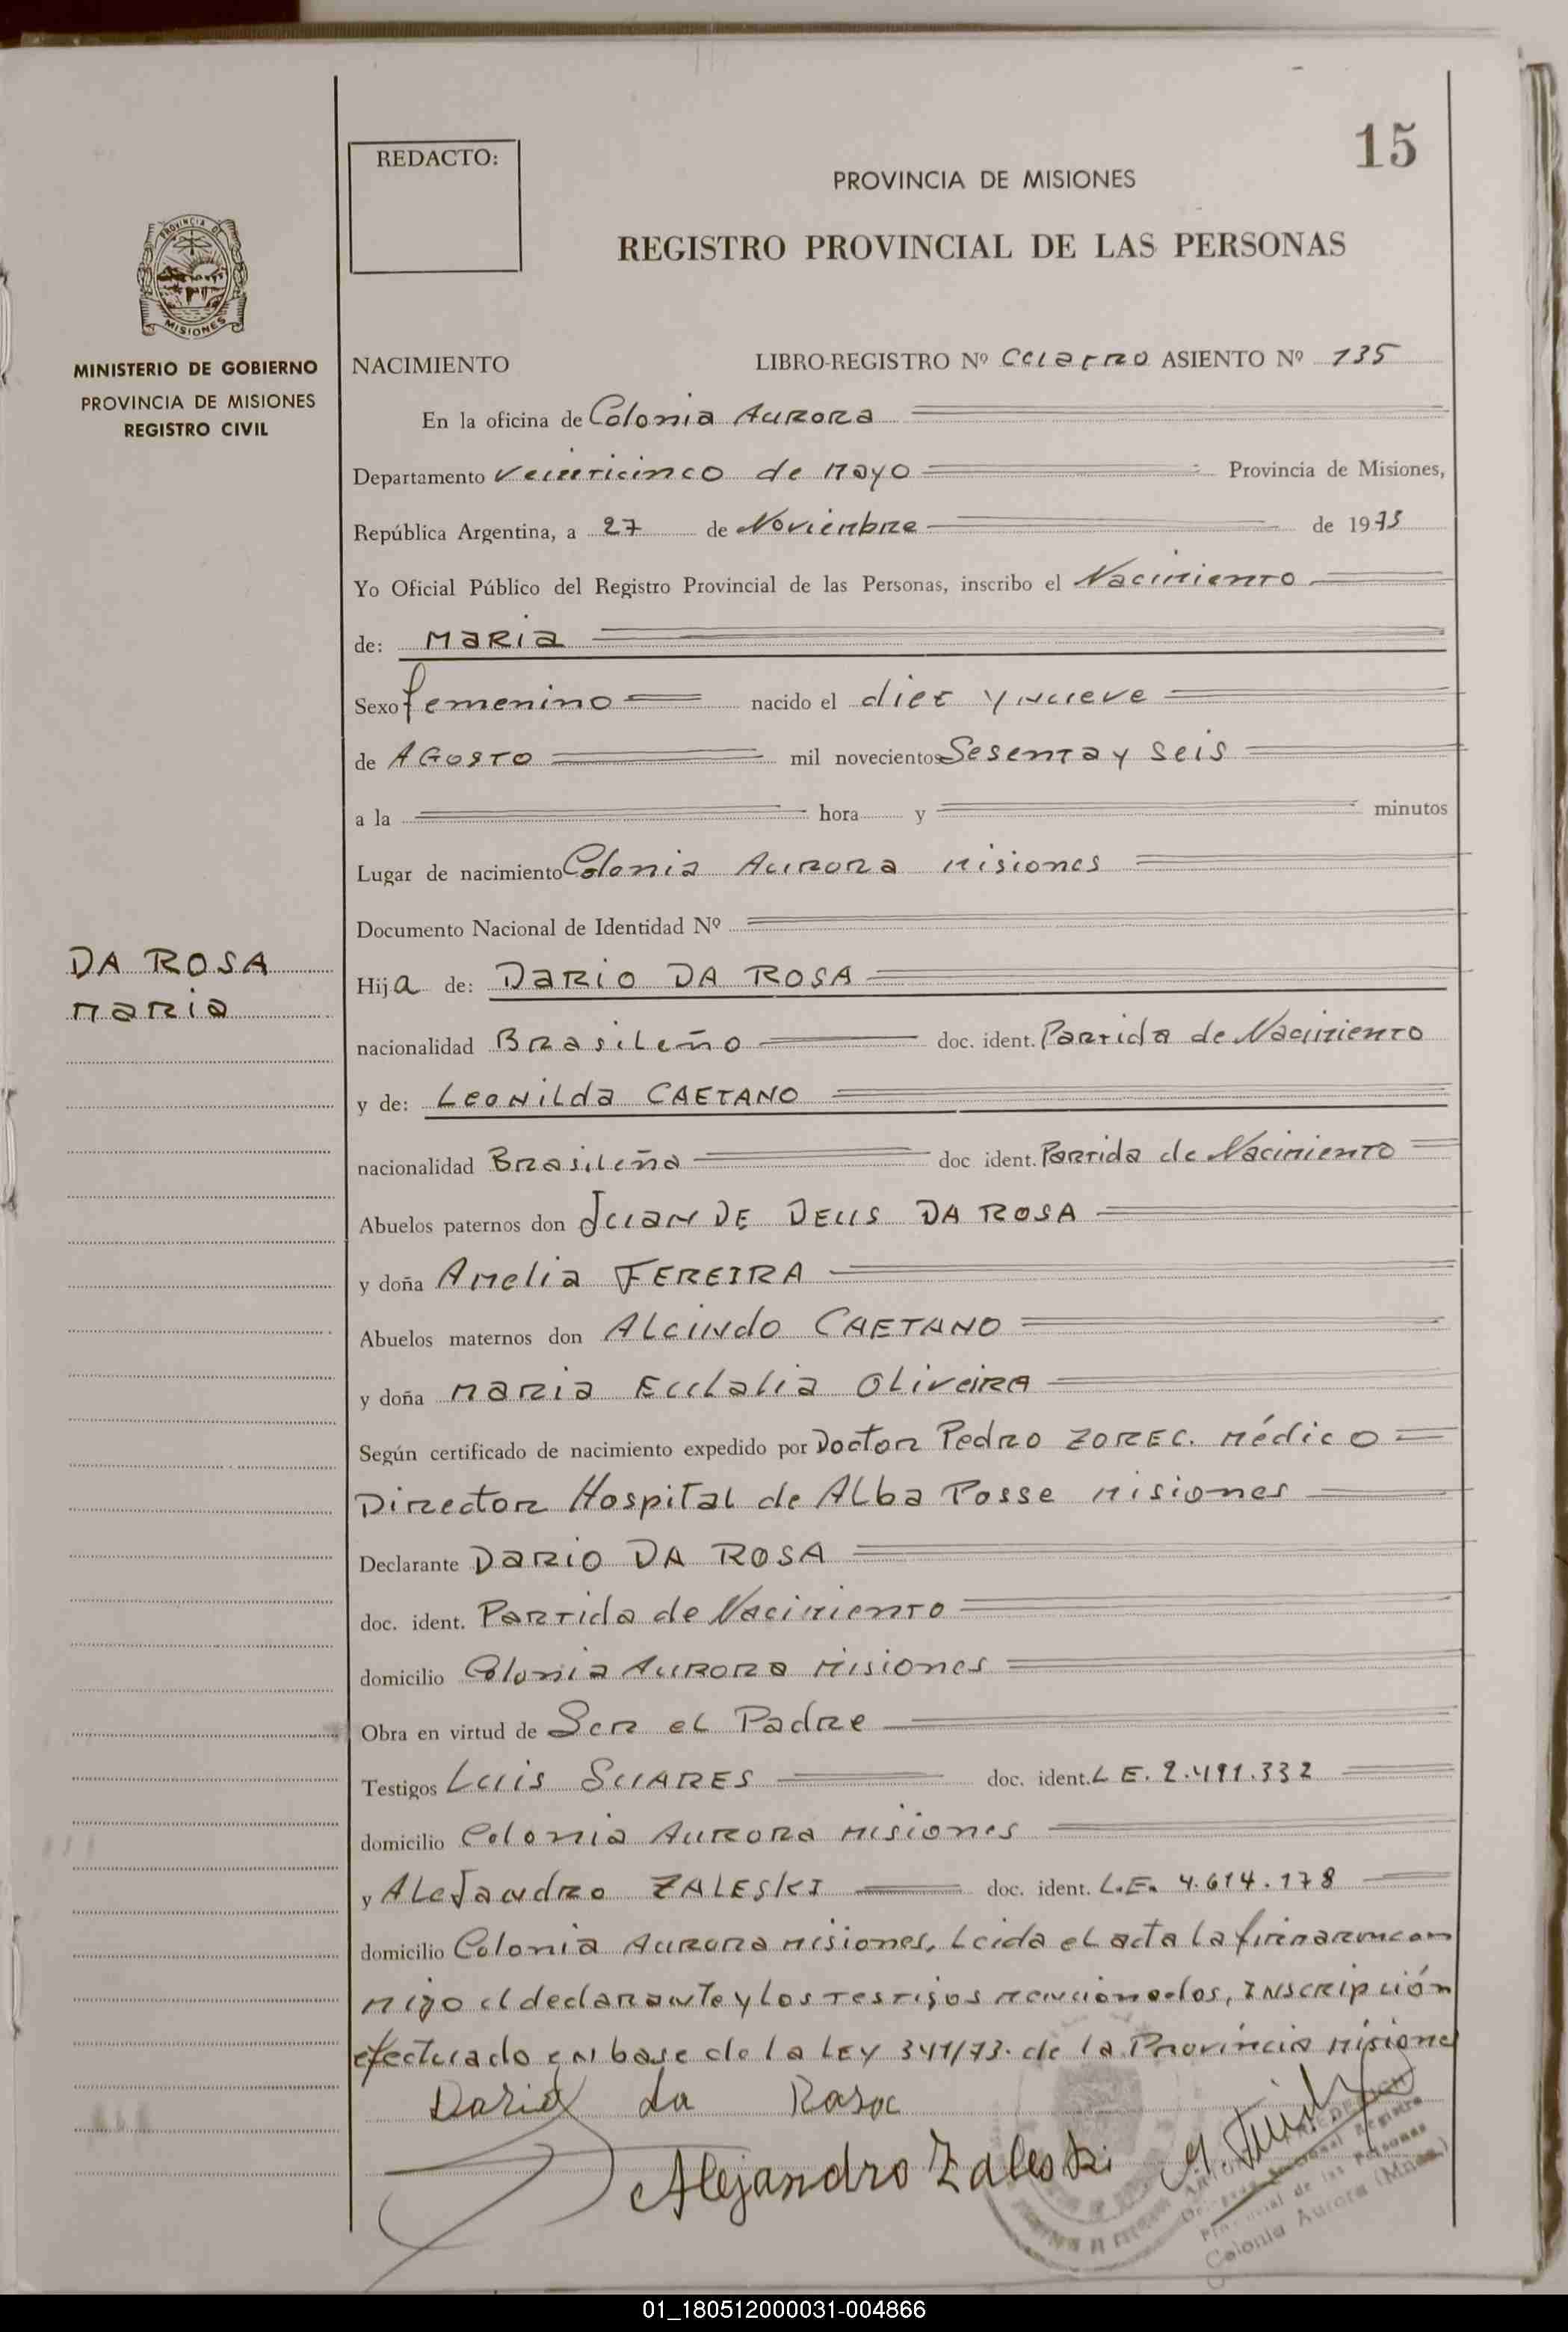 15
REDACTO:
PROVINCIA DE MISIONES
REGISTRO PROVINCIAL DE LAS PERSONAS
PROVINCIA DE
MISIONES
MINISTERIO DE GOBIERNO
PROVINCIA DE MISIONES
REGISTRO CIVIL
NACIMIENTO LIBRO-REGISTRO Nº Cuatro ASIENTO Nº 135
En la oficina de Colonia Aurora
Departamento Veinticinco de Mayo Provincia de Misiones,
República Argentina, a 27 de Noviembre de 1975
Yo Oficial Público del Registro Provincial de las Personas, inscribo el Nacimiento
de: Maria
Sexo femenino nacido el diez y nueve
de Agosto mil novecientos Sesenta y seis
a la hora y minutos
Lugar de nacimiento Colonia Aurora Misiones
Documento Nacional de Identidad Nº
DA ROSA
Maria
Hija de: Dario DA ROSA
nacionalidad Brasileño doc. ident. Partida de Nacimiento
y de: Leonilda CAETANO
nacionalidad Brasileña doc ident. Partida de Nacimiento
Abuelos paternos don Juan DE DEUS DA ROSA
y doña Amelia FEREIRA
Abuelos maternos don Alcindo CAETANO
y doña Maria Eulalia Oliveira
Según certificado de nacimiento expedido por Doctor Pedro ZOREC. Médico
Director Hospital de Alba Posse Misiones
Declarante Dario DA ROSA
doc. ident. Partida de Nacimiento
domicilio Colonia Aurora Misiones
Obra en virtud de Ser el Padre
Testigos Luis SUARES doc. ident. L E. 2.491.332
domicilio Colonia Aurora Misiones
y Alejandro ZALESKI doc. ident. L.E. 4.614.178
domicilio Colonia Aurora Misiones, Leida el acta la firmaron con
migo el declarante y los testigos mencionados, Inscripción
efectuado en base de la LEY 341/73. de la Provincia Misiones
Dario da Rosa
Alejandro Zaleski
Registro
Provincial de las Personas
Colonia Aurora (Mnes.)
01_180512000031-004866